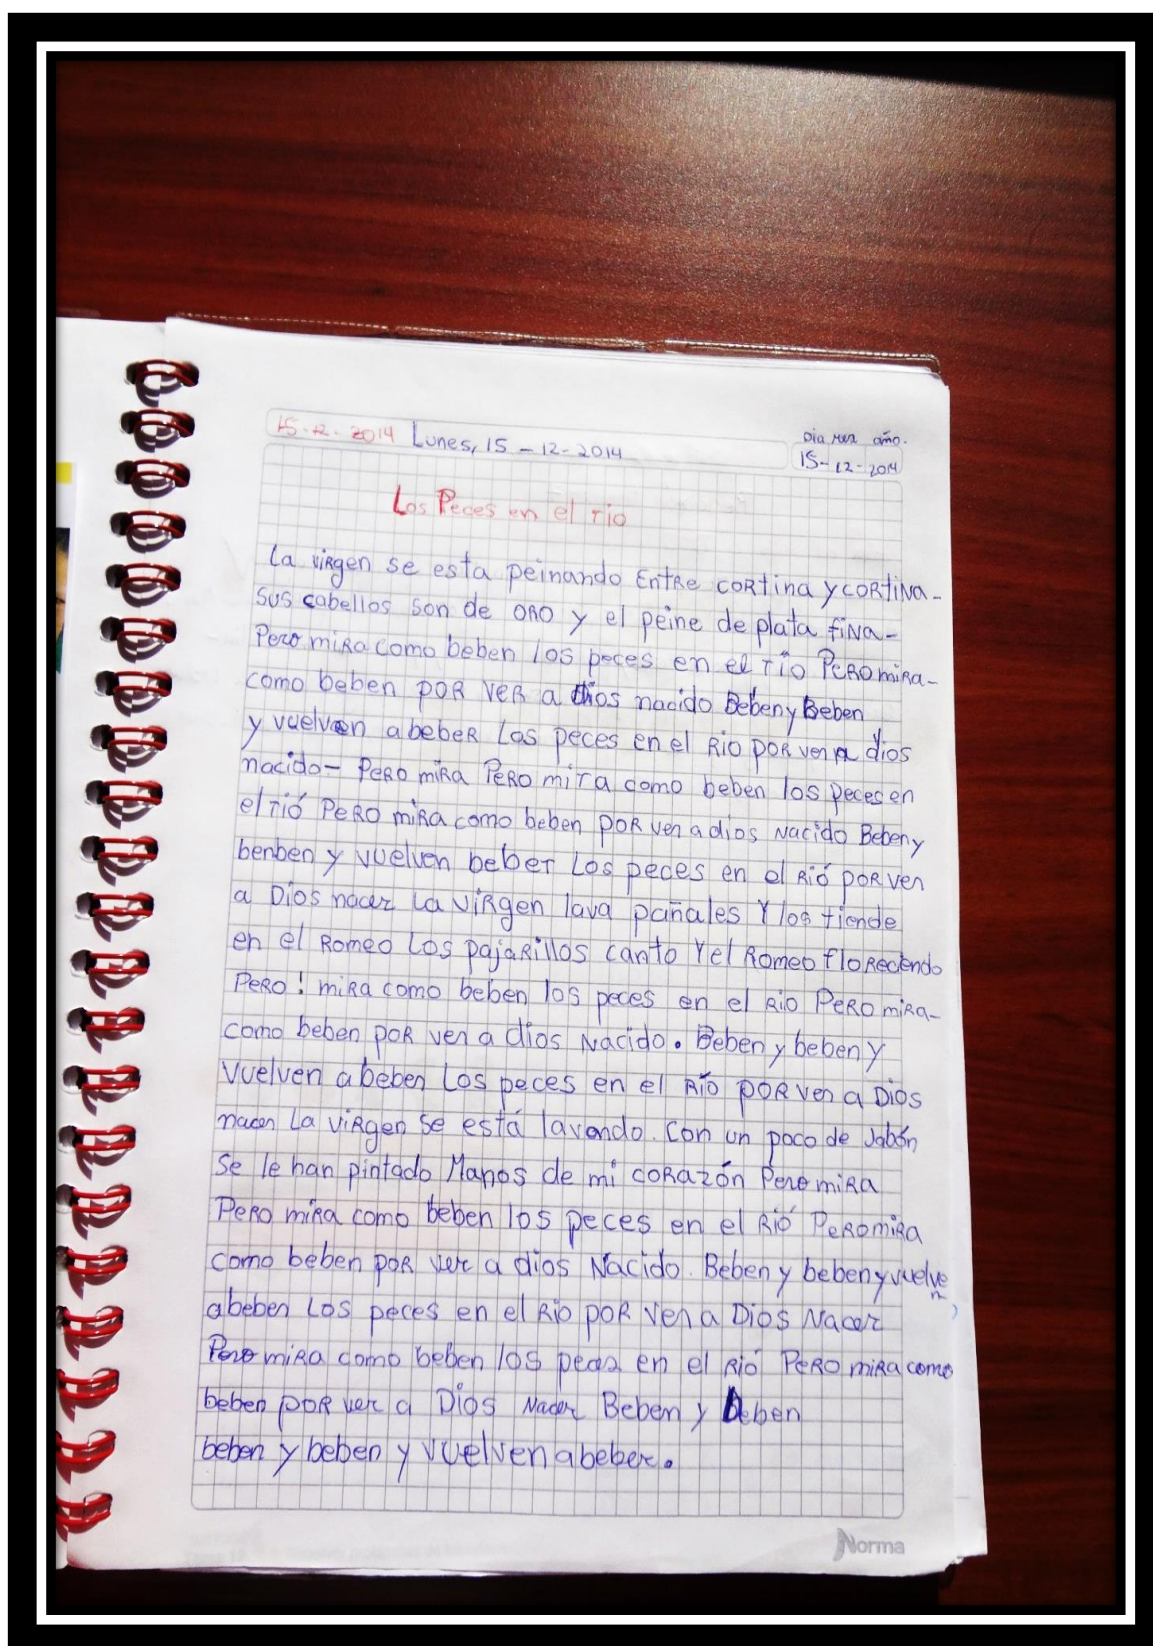 15-12-2014 Lunes, 15-12-2014
Dia mes año.
15-12-2014
Los Peces en el rio
La virgen se esta peinando Entre cortina y cortina-
sus cabellos son de oro y el peine de plata fina-
Pero mira como beben los peces en el río Pero mira-
como beben por ver a dios nacido Beben y Beben
y vuelven a beber Los peces en el Rio por ver a dios
nacido- Pero mira Pero mira como beben los peces en
el rió Pero mira como beben por ver a dios Nacido Beben y
benben y vuelven beber Los peces en el Rió por ver
a Dios nacer La virgen lava pañales Y los tiende
en el Romeo Los pajarillos canto Y el Romeo floreciendo
Pero! mira como beben los peces en el Rio Pero mira-
como beben por ver a dios Nacido. Beben y beben y
vuelven a beber Los peces en el Río por ver a Dios
nacer La virgen se está lavando. Con un poco de Jabón
Se le han pintado Manos de mi corazón Pero mira
Pero mira como beben los peces en el Rió Pero mira
como beben por ver a dios Nacido. Beben y beben y vuelven
a beber Los peces en el Rio por ver a Dios Nacer
Pero mira como beben los peces en el Rió Pero mira como
beben por ver a Dios Nacer Beben y beben
beben y beben y vuelven a beber.
Norma